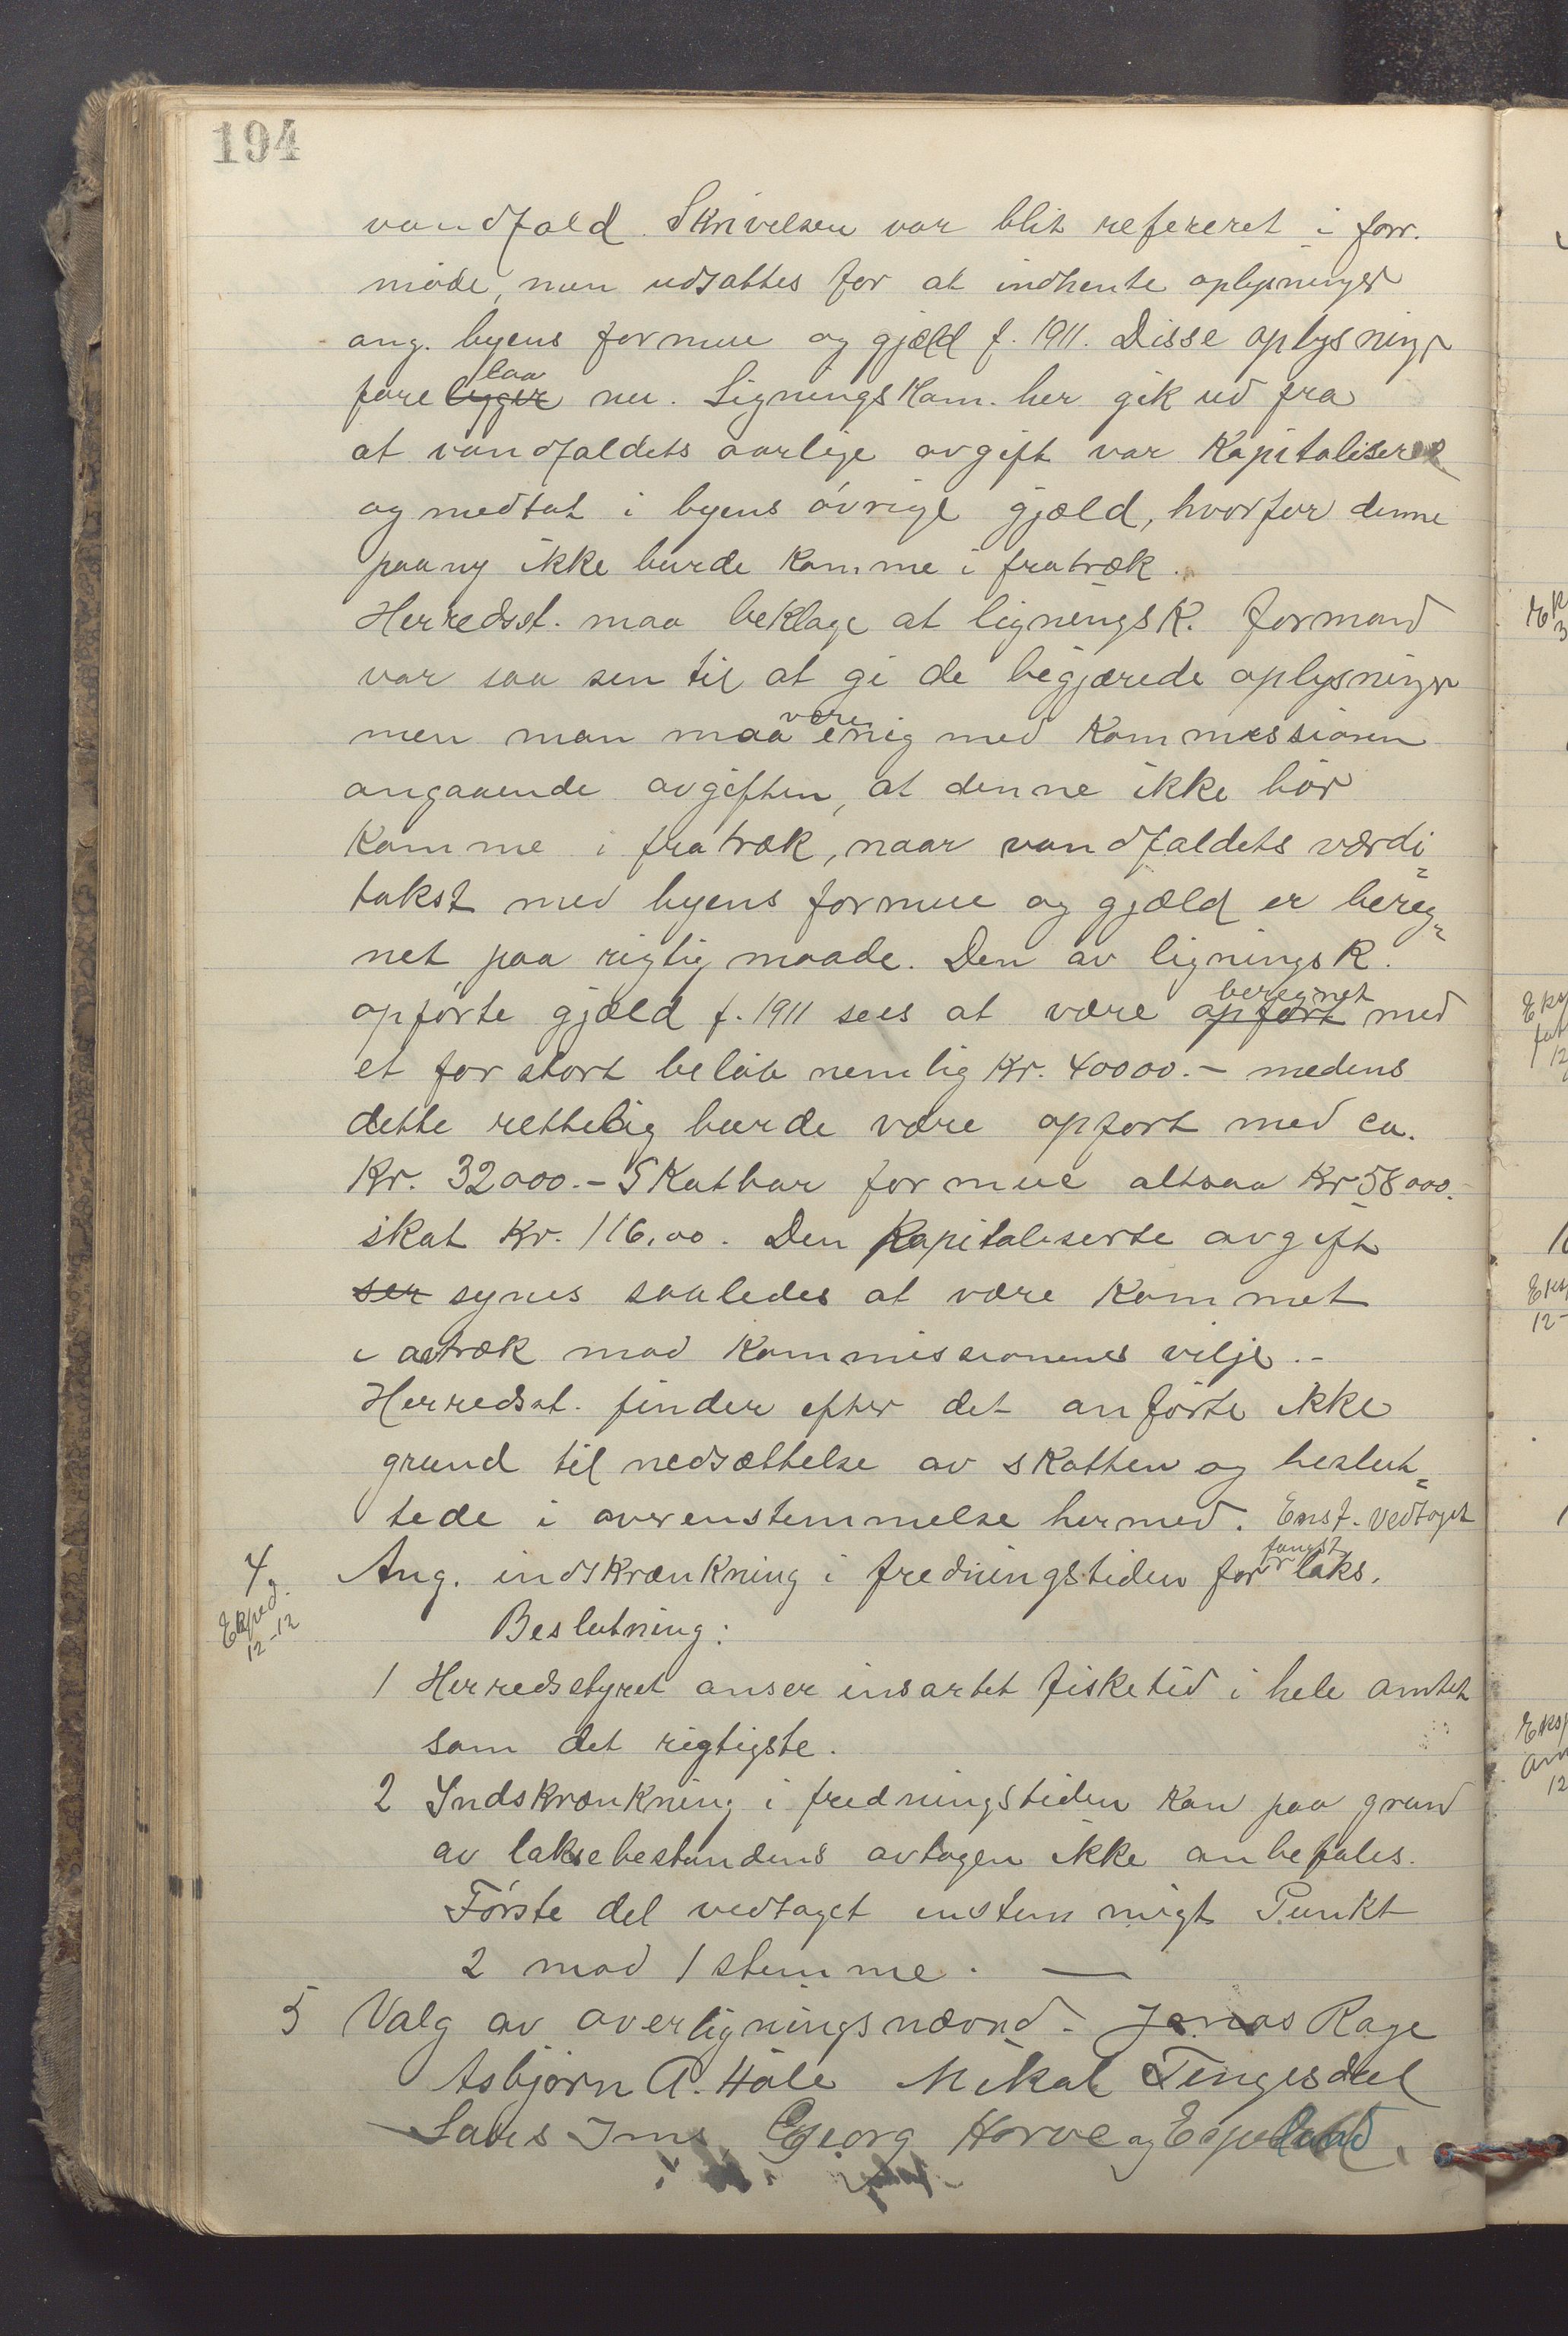 194
vandfald. Skrivelsen var blit refereret i forr.
møde, men udsattes for at indhente oplysninger
ang. byens formue og gjæld f. 1911. Disse oplysninger
forelygger laa nu. Ligningskom. her gik ud fra
at vandfaldets aarlige avgift var kapitaliseret
og medtat i byens øvrige gjæld, hvorfor denne
paany ikke burde komme i fratræk.
Herredsst. maa beklage at ligningsk. formand
var saa sen til at gi de begjærede oplysninger
men man maa være enig med kommissionen
angaaende avgiften, at denne ikke bør
komme i fratræk, naar vandfaldets værdi=
takst med byens formue og gjæld er bereg=
net paa rigtig maade. Den av ligningsk.
opførte gjæld f. 1911 sees at være opført beregnet med
et for stort beløb nemlig Kr. 40000.- medens
dette rettelig burde være opført med ca.
Kr. 32000.- Skatbar formue altsaa Kr 58000.-
skat Kr. 116,00. Den kapitaliserte avgift
ser synes saaledes at være kommet
i avtræk mod kommissionenes vilje.-
Herredsst. finder efter det anførte ikke
grund til nedsættelse av skatten og beslut=
tede i overenstemmelse hermed. Enst. vedtaget
4. Ang. indskrænkning i fredningstiden for fangst laks.
Eksped.
12-12
Beslutning:
1 Herredsstyret anser insartet fisketid i hele amtet
som det rigtigste.
2 Indskrænkning i fredningstiden kan paa grund
av laksebestandens avtagen ikke anbefales.
Første del vedtaget enstemmigt Punkt
2 mod 1 stemme. —
5 Valg av overligningsnævnd. Jonas Rage
Asbjørn A. Håle Mikal Tengesdal
Lars Ims Georg Horve og Espeland.